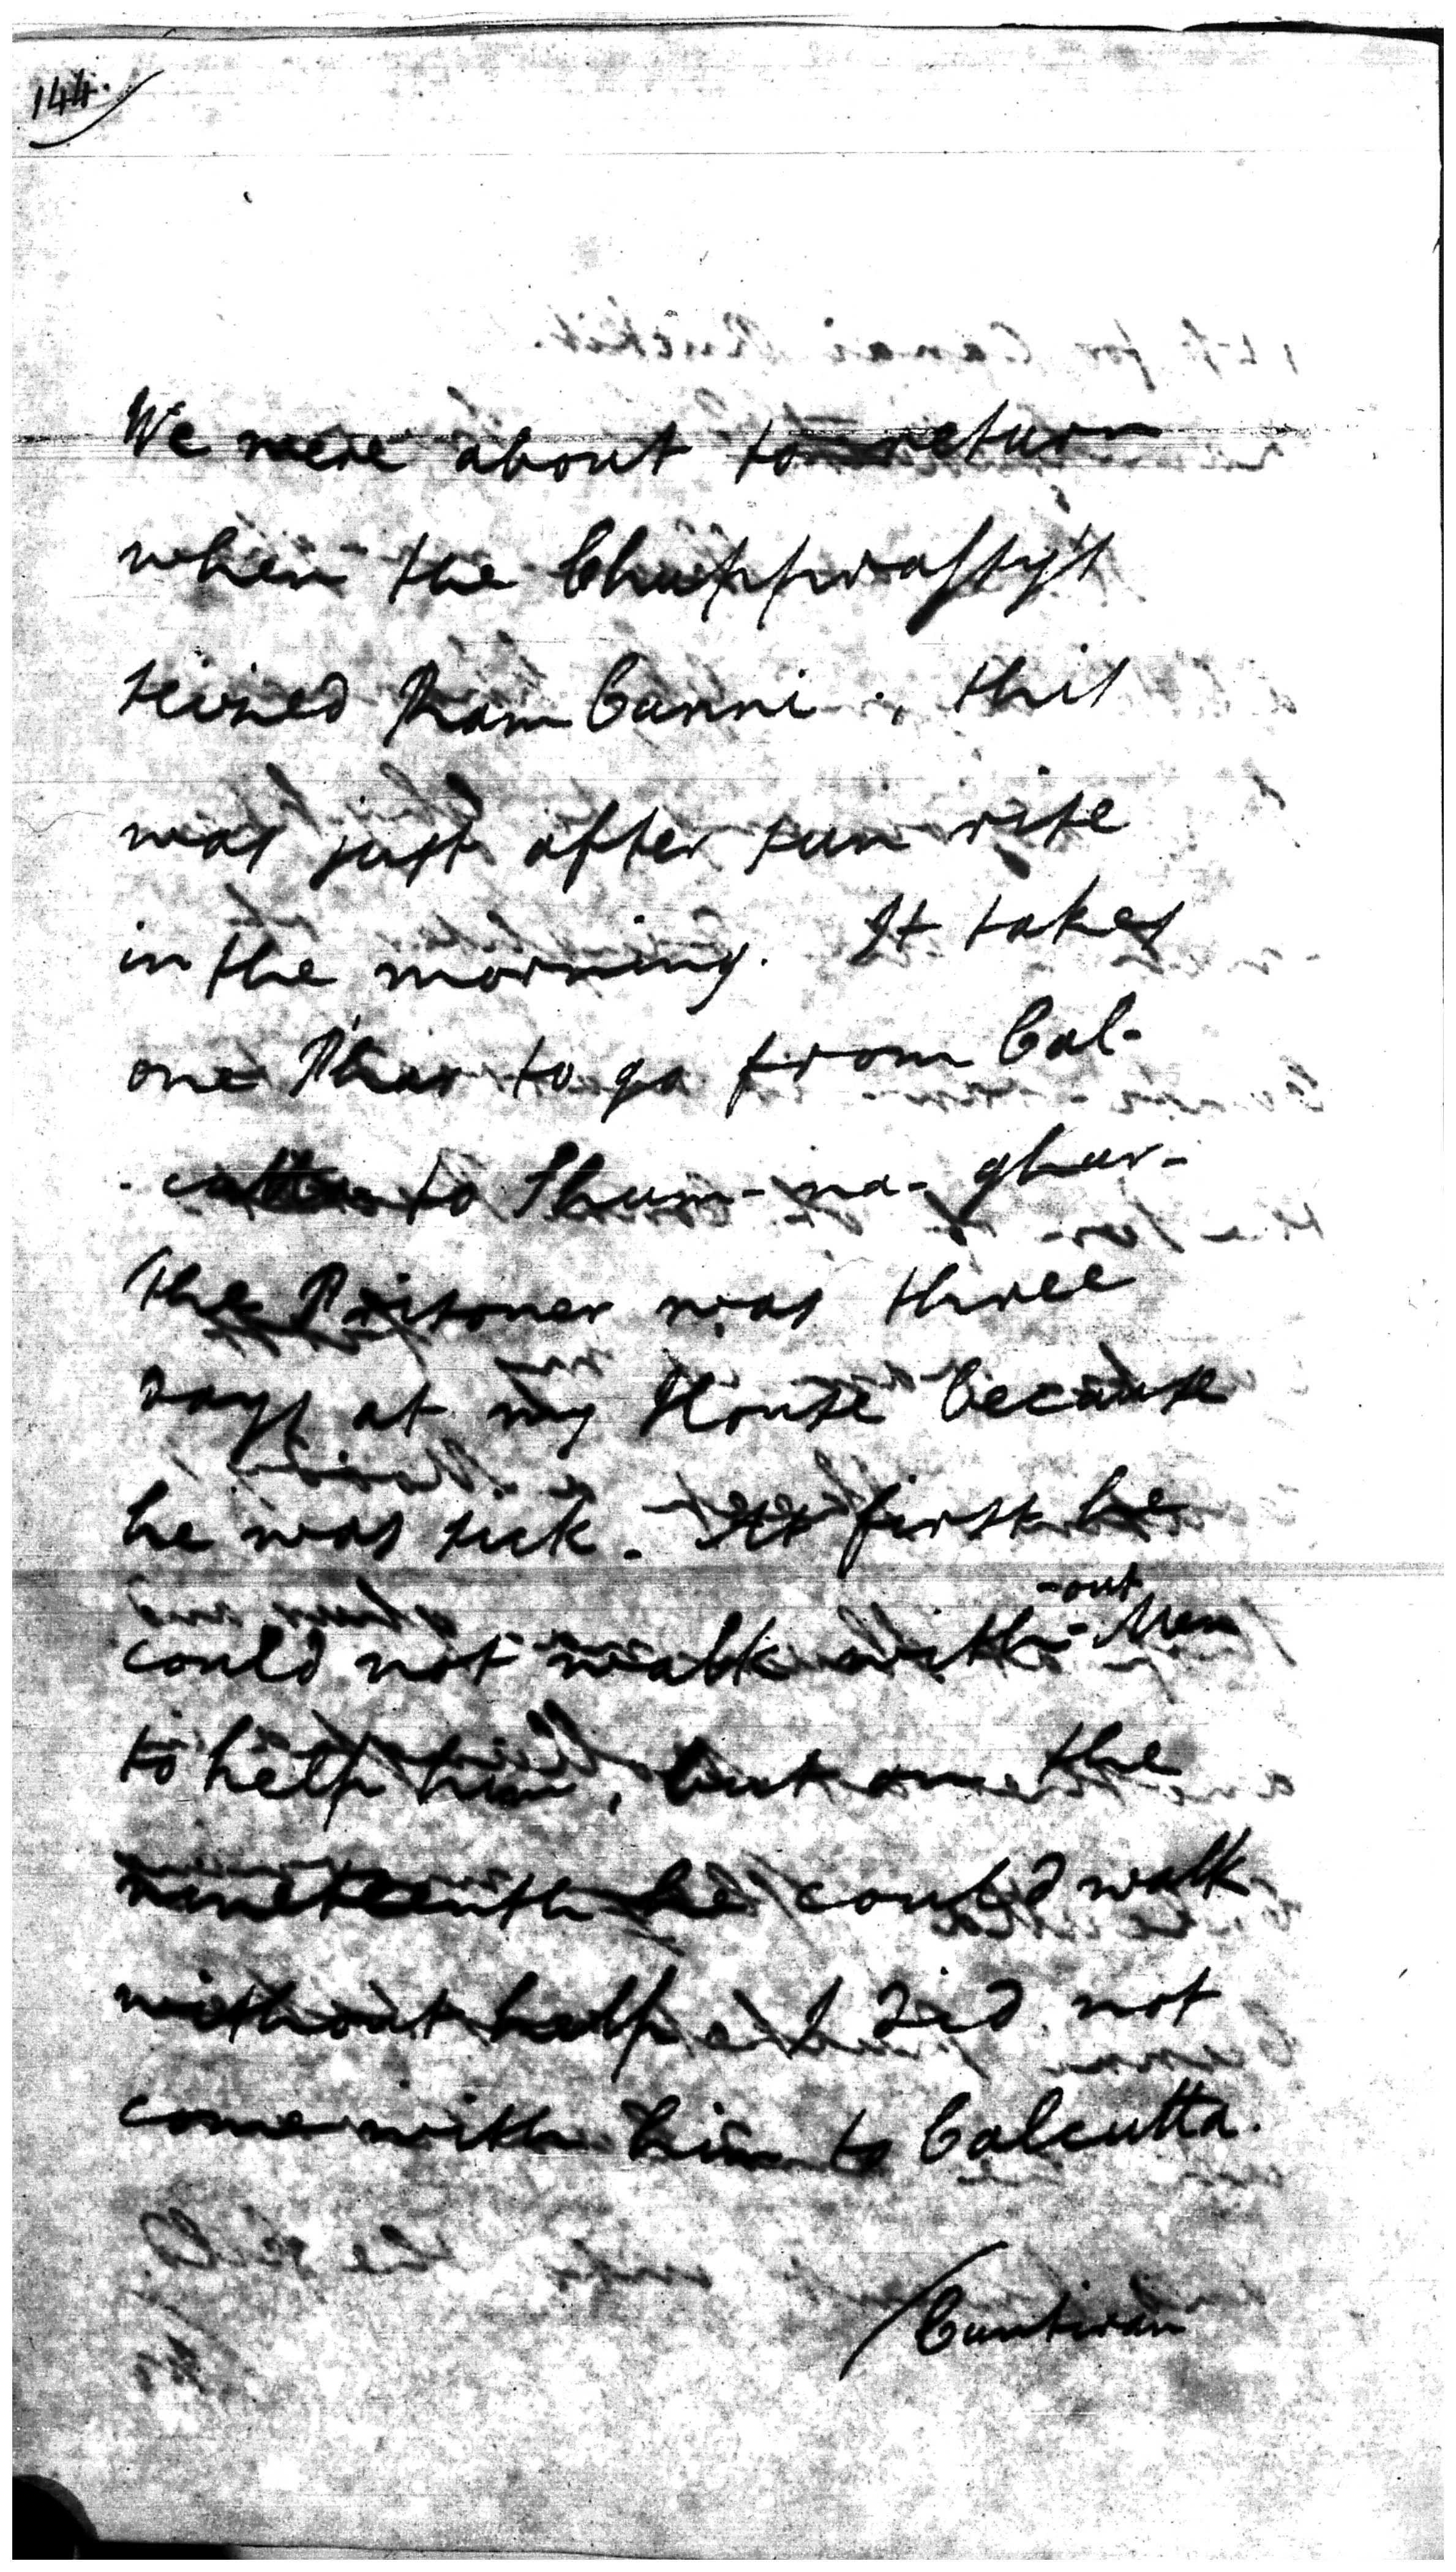 144.
We were about to return
when the Chupprassys
seized Ram Canni, this
was just after sun rise
in the morning. It takes
one Phar to go from Cal-
-cutta to Shum-na-ghur-
The Prisoner was three
days at my House because
he was sick. At first he
could not walk with-out Men
to help him, but on the
nineteenth he could walk
without help. I did not
come with him to Calcutta.